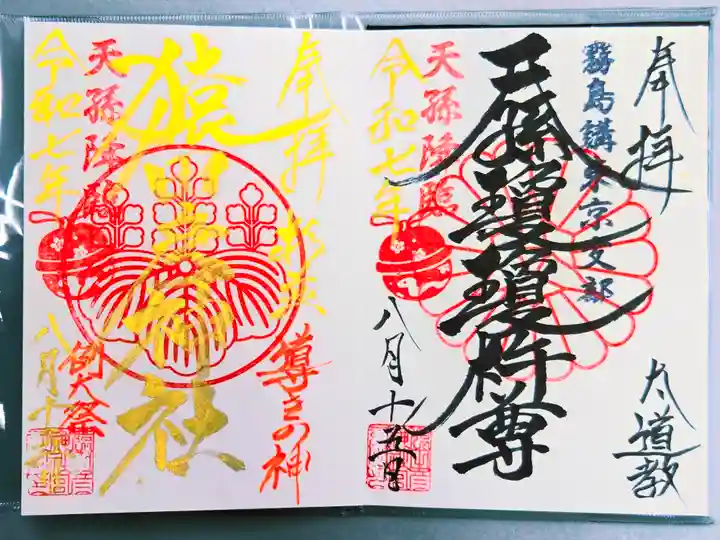 奉拝
霧島講東京支部
太道教
天孫瓊瓊杵尊
天孫降臨
令和七年
八月十五日
奉拝
導きの神
猿田彦神社
天孫降臨
例大祭
令和七年
八月十五日